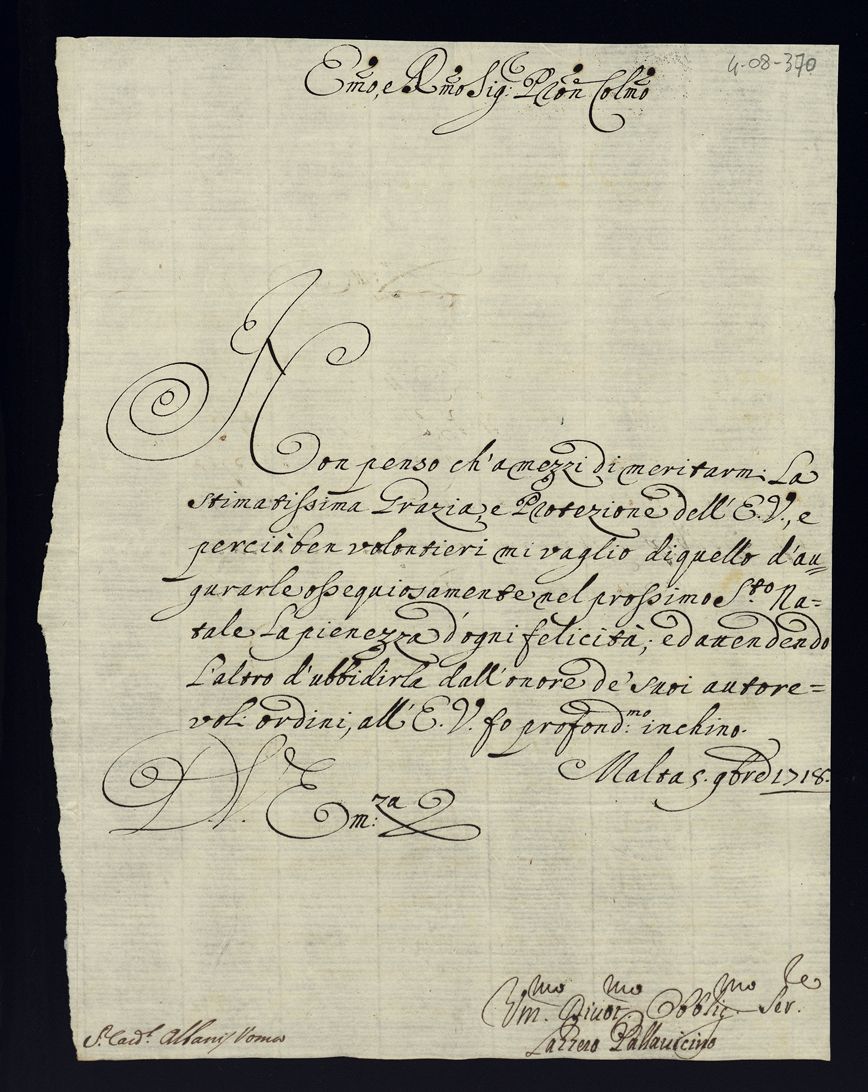 4-08-370
Emo, e Rmo Sig: Pron Colmo
Non penso ch'a mezzi di meritarmi La
stimatissima Grazia, e Protezione dell'E.V., e
perciò ben volontieri mi vaglio di quello d'au=
gurarle ossequiosamente nel prossimo S.to Na=
tale La pienezza d'ogni felicità; ed attendendo
L'altro d'ubbidirla dall'onore de' suoi autore=
voli ordini, all'E.V. fo profond:mo inchino.
Malta 5. 9bre 1718.
D V. Em:za
Vm.mo Divot.mo Obblig.mo Ser.re
Lazzero Pallavicino
S.r Card.l Albani Roma